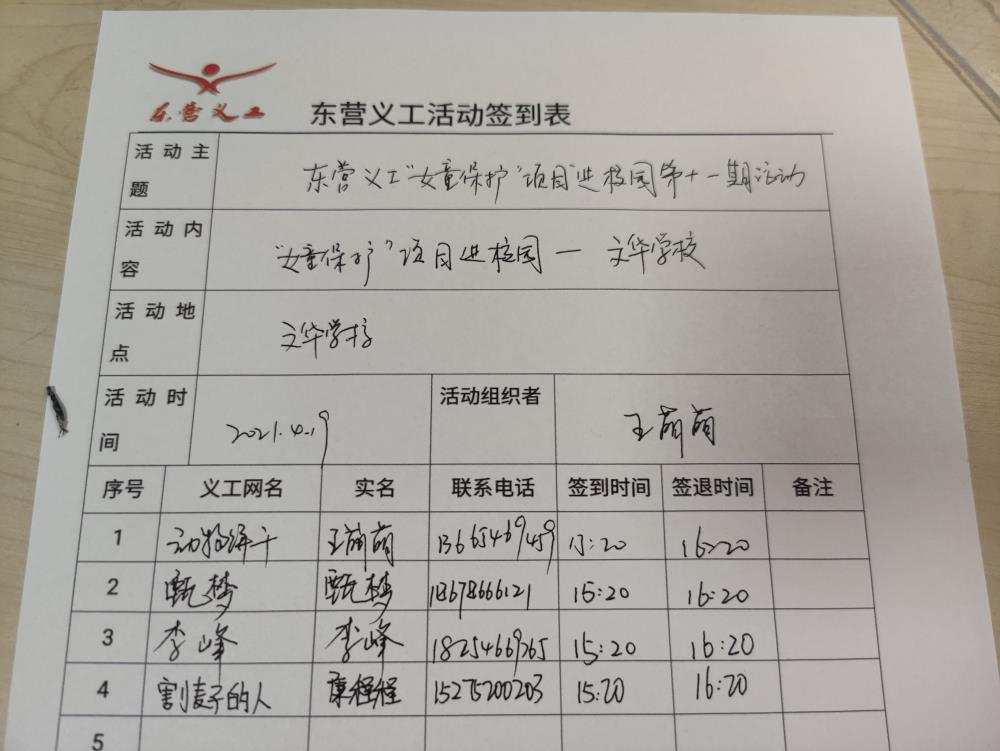 东营义工
东营义工活动签到表
活动主题 东营义工"女童保护"项目进校园第十一期活动
活动内容 "女童保护"项目进校园一文华学校
活动地点 文华学校
活动时间 2021.4.19 活动组织者 王萌萌
序号 义工网名 实名 联系电话 签到时间 签退时间 备注
1 动物饼干 王萌萌 13665469459 15:20 16:20
2 甄梦 甄梦 18678666121 15:20 16:20
3 李峰 李峰 18254669265 15:20 16:20
4 割麦子的人 程程 15275200203 15:20 16:20
5